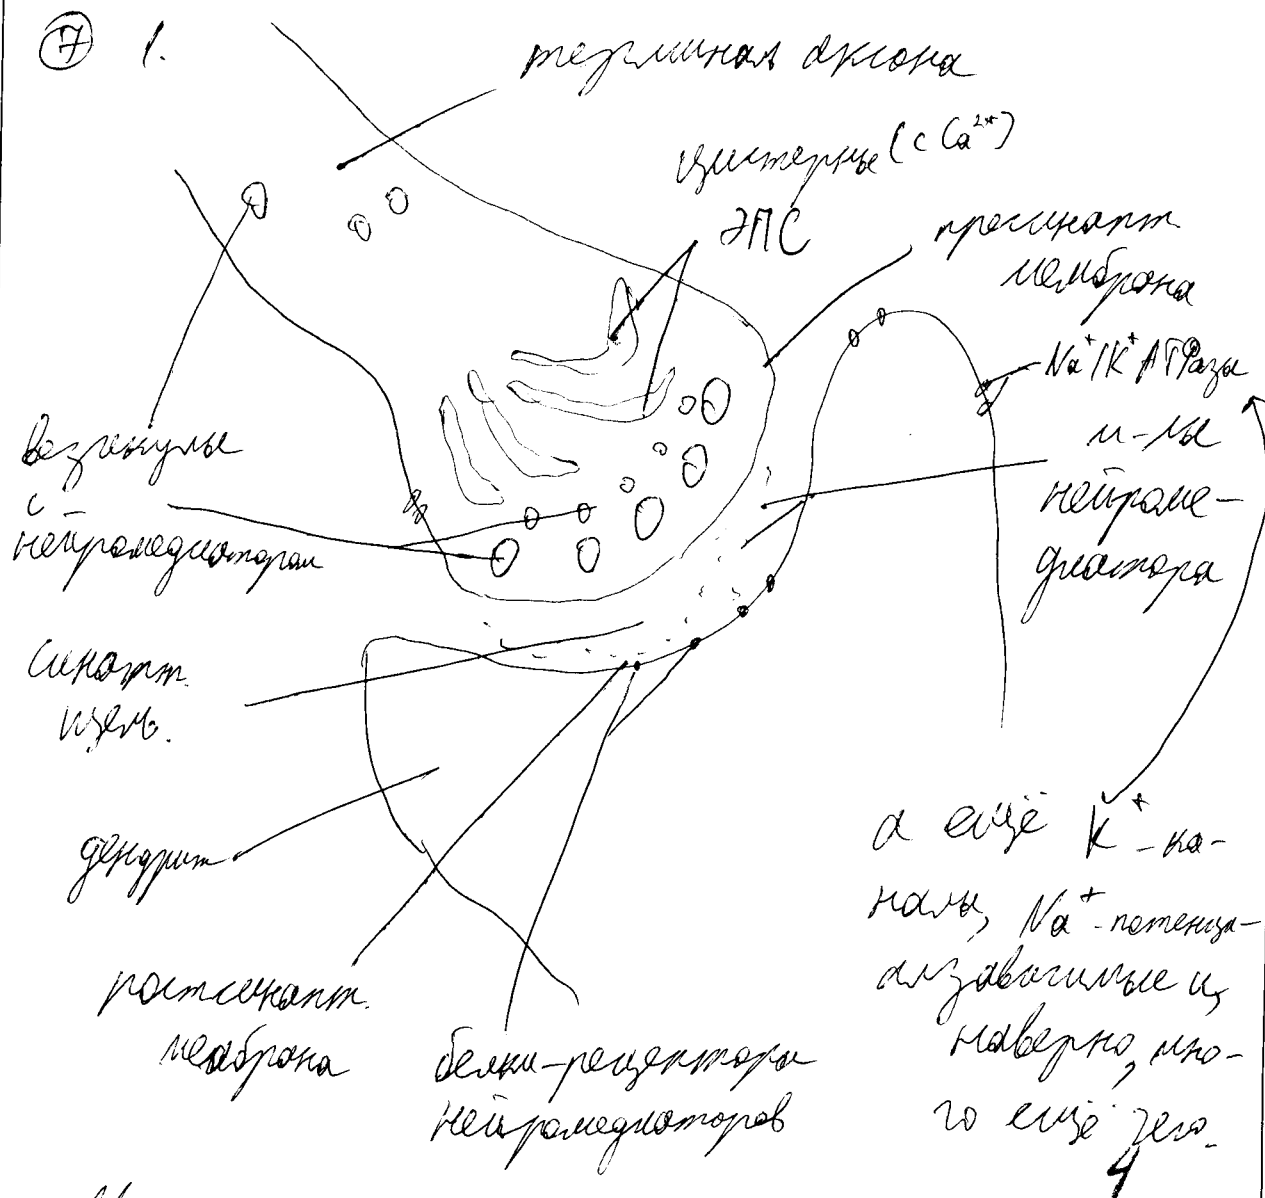 7 1.
терминаль аксона
цистерны (с Ca²⁺)
ЭПС
пресинапт.
мембрана
Na⁺/K⁺ АТФазы
м-лы
нейроме-
диатора
везикулы
с
нейромедиатором
синапт.
щель.
дендрит
постсинапт.
мембрана
белки-рецепторы
нейромедиаторов
а ещё K⁺-ка-
налы, Na⁺-потенци-
алзависимые и,
наверно, мно-
го ещё чего.
4